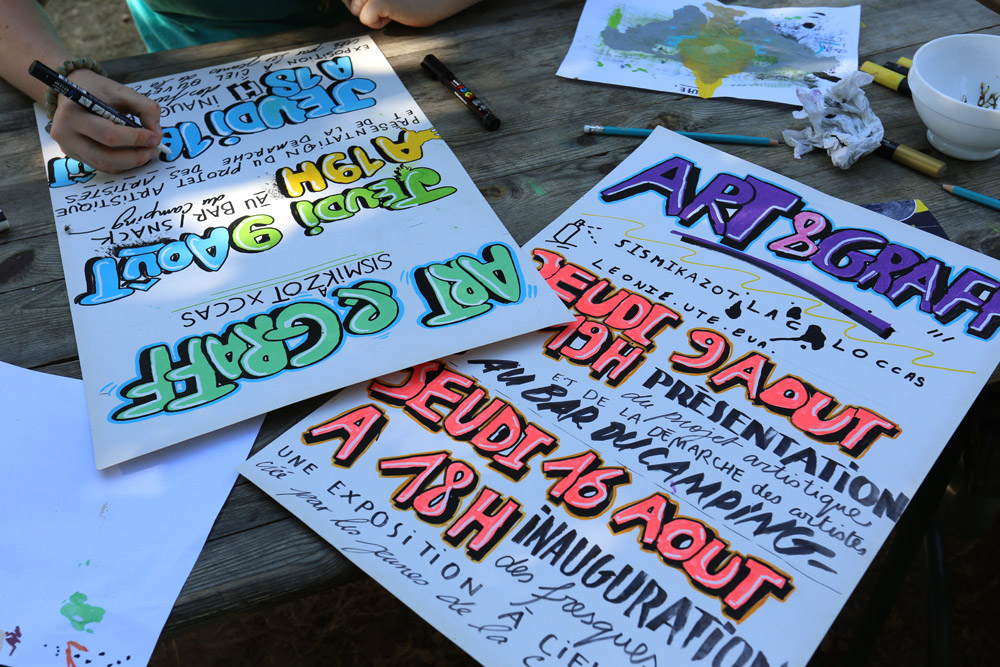 ART & GRAFF
SISMIKAZOT X CCAS
JEUDI 9 AOUT
AU BAR / SNACK
du camping
A 19H
PRÉSENTATION DU PROJET ARTISTIQUE
ET DE LA DÉMARCHE DES ARTISTES
JEUDI 16
A 18H
INAUG
EXPOSITION À CIEL
ART & GRAFF
SISMIKAZOT LAC
LEONIE.UTE.EVA LOCCAS
JEUDI 9 AOUT
19H PRÉSENTATION
du projet artistique
ET DE LA DÉMARCHE des artistes
AU BAR DU CAMPING
JEUDI 16 AOUT
A 18H INAUGURATION
des fresques
UNE EXPOSITION À CIEL
crée par les jeunes de la